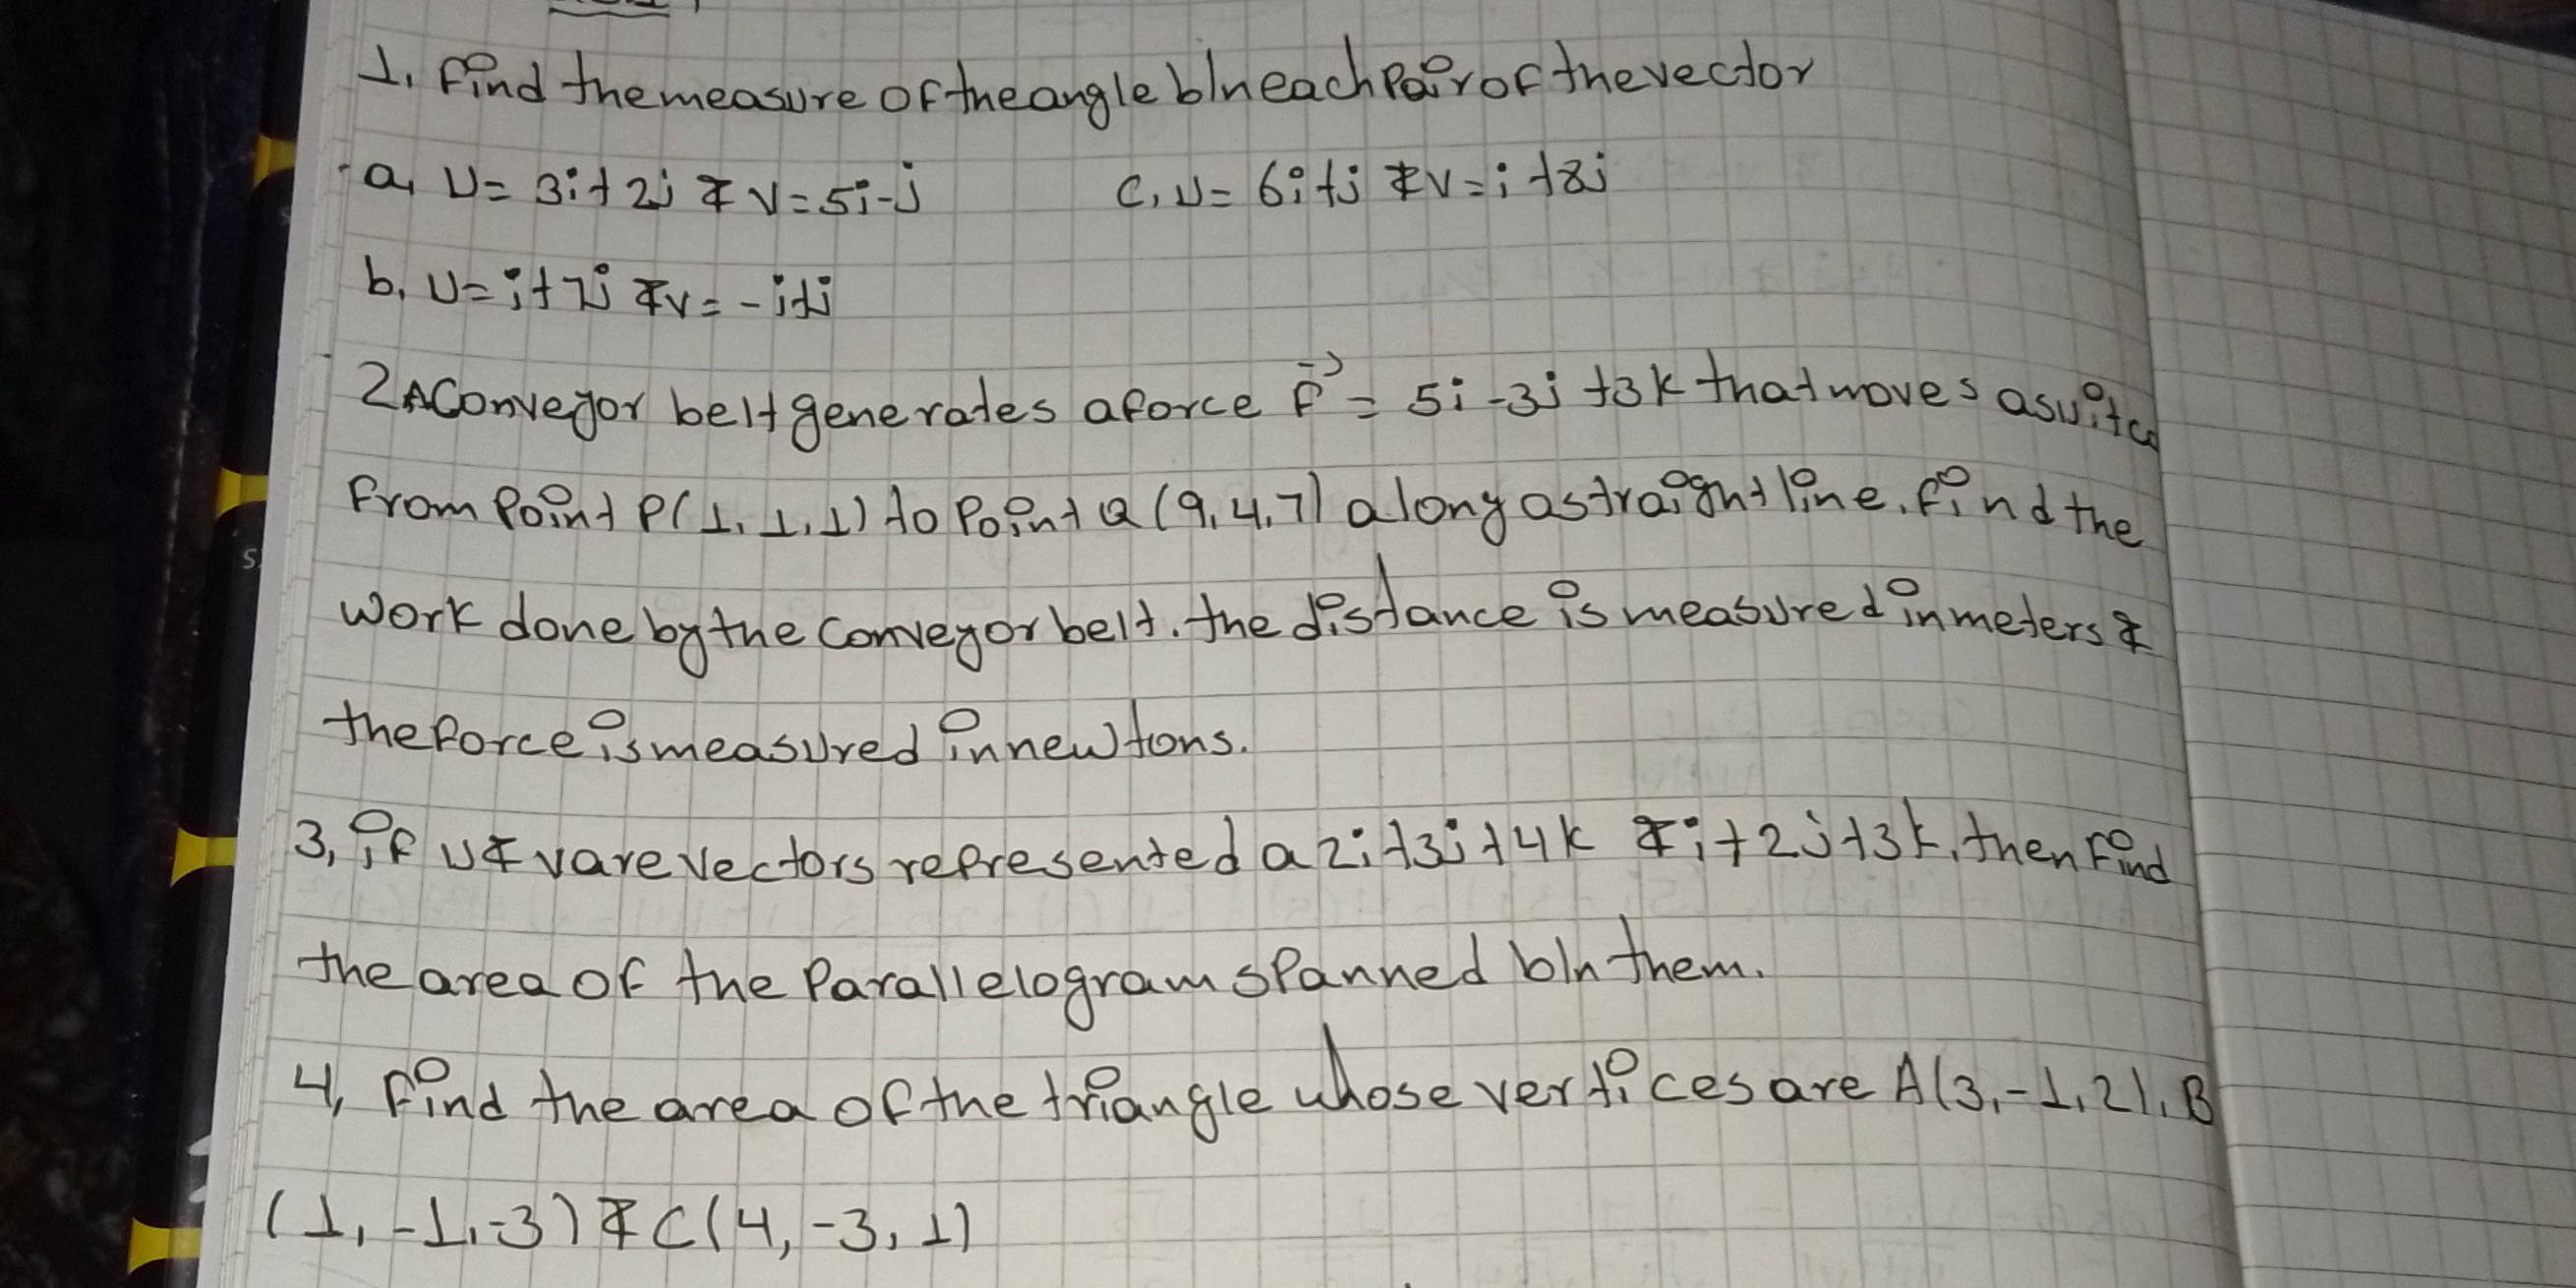 1. Find the measure of the angle b/n each Pair of the vector
a, U = 3i + 2j & V = 5i - j   C, U = 6i + j & V = i + 8j
b, U = i + 7j & V = -i + j
2 A Conveyor belt generates a force F = 5i - 3j + 3k that moves a suitca
From Point P(1, 1, 1) to Point Q (9, 4, 7) along a straight line. find the
Work done by the conveyor belt. the distance is measured in meters &
the force is measured in newtons.
3, if U & V are vectors represented a 2i + 3j + 4k & i + 2j + 3k, then Find
the area of the Parallelogram spanned b/n them.
4, Find the area of the triangle whose vertices are A(3, -1, 2), B
(1, -1, -3) & C(4, -3, 1)